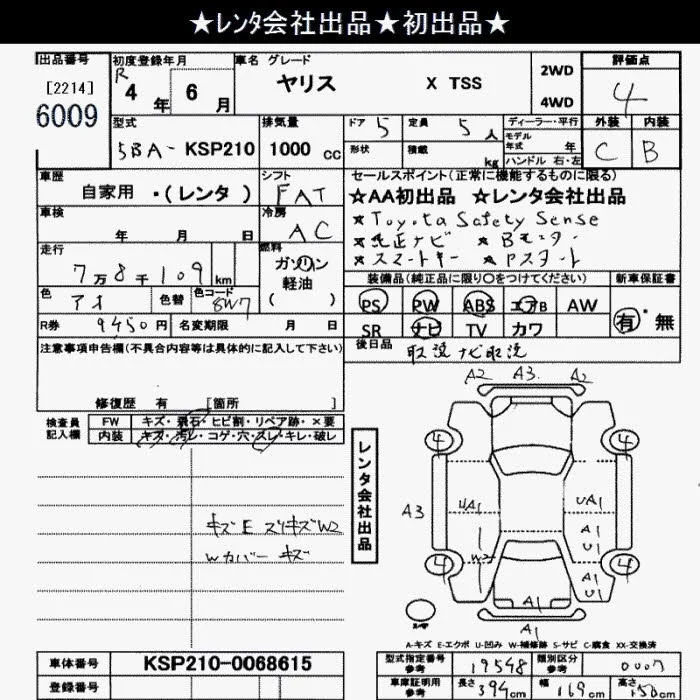 ★レンタ会社出品★初出品★
出品番号
[2214]
6009
初度登録年月
R 4年 6月
車名 グレード
ヤリス X TSS
2WD
4WD
評価点
4
型式
5BA-KSP210
排気量
1000 cc
ドア 5
定員 5人
形状
積載 kg
ディーラー・平行
モデル年式 年
ハンドル 右・左
外装 C
内装 B
車歴
自家用・(レンタ)
シフト
FAT
セールスポイント(正常に機能するものに限る)
☆AA初出品 ☆レンタ会社出品
★Toyota Safety Sense
★純正ナビ ★Bモニター
★スマートキー ★Pスタート
車検
年 月 日
冷房
AC
走行
7万8千109 km
燃料
ガソリン
軽油
( )
色 アオ
色替
色コード 8W7
装備品(純正品に限り○をつけてください)
新車保証書
PS PW ABS エアB AW
SR ナビ TV カワ
有・無
R券 9450円
名変期限 月 日
後日品 取説 ナビ取説
注意事項申告欄(不具合内容等は具体的に記入して下さい)
修復歴 有 [箇所 ]
検査員記入欄
FW キズ・飛石・ヒビ割・リペア跡・×要
内装 キズ・汚レ・コゲ・穴・スレ・キレ・破レ
キズE スリキズW2
Wカバー キズ
レンタ会社出品
A2 A3 A2
4 4
A3 UA1 UA1
A1
U1
W2
4 4
A1
U1
A1
A1
A-キズ E-エクボ U-凹み W-補修跡 S-サビ C-腐食 XX-交換済
車体番号 KSP210-0068615
登録番号
型式指定番号 参考 19548
類別区分 参考 0007
車庫証明用 参考
長さ 394cm
幅 169cm
高さ 150cm